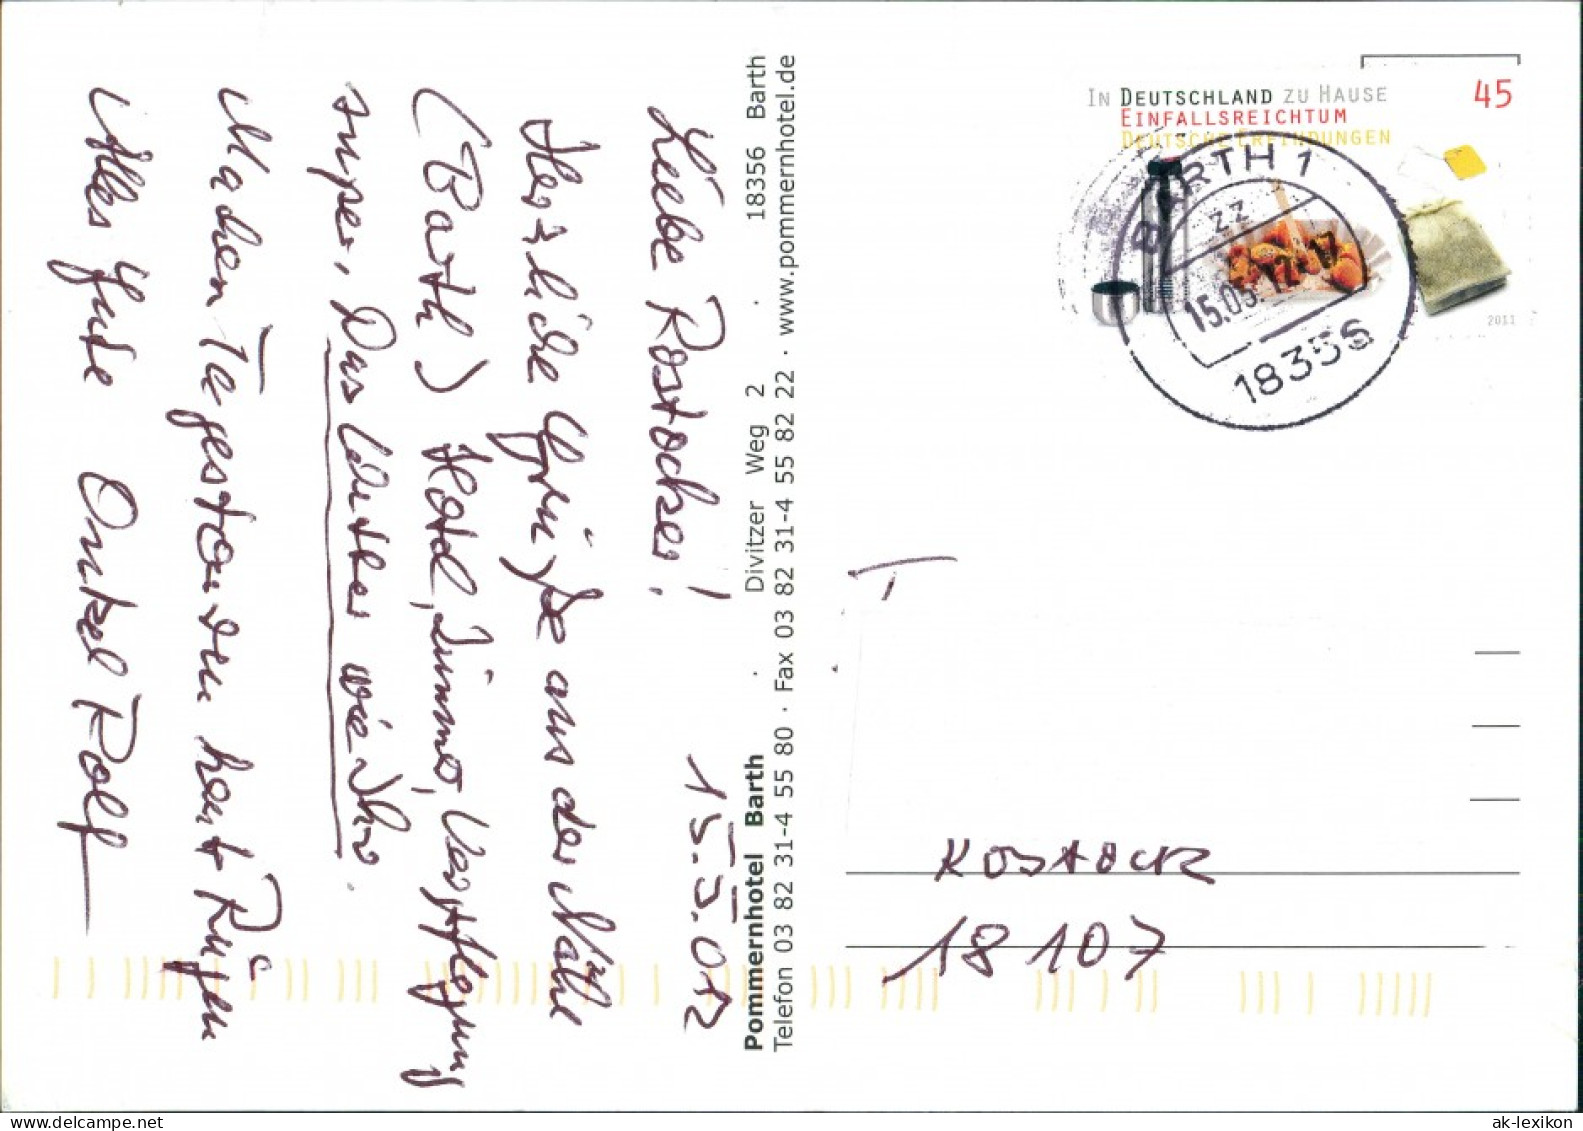 Liebe Rostocker! 15.5.012
Herzliche Grüße aus der Nähe
(Barth) Hotel, Zimmer, Verpflegung
super. Das Wetter wie Ihr.
Machen Tagestouren heut Rügen
Alles Gute Onkel Rolf
18356 Barth · Divitzer Weg 2 · Pommernhotel Barth
Telefon 03 82 31-4 55 80 · Fax 03 82 31-4 55 82 22 · www.pommernhotel.de
IN DEUTSCHLAND ZU HAUSE
EINFALLSREICHTUM
DEUTSCHE ERFINDUNGEN
45
2011
BARTH 1
ZZ
15.05.12-17
18356
Rostock
18107
www.delcampe.net
ak-lexikon